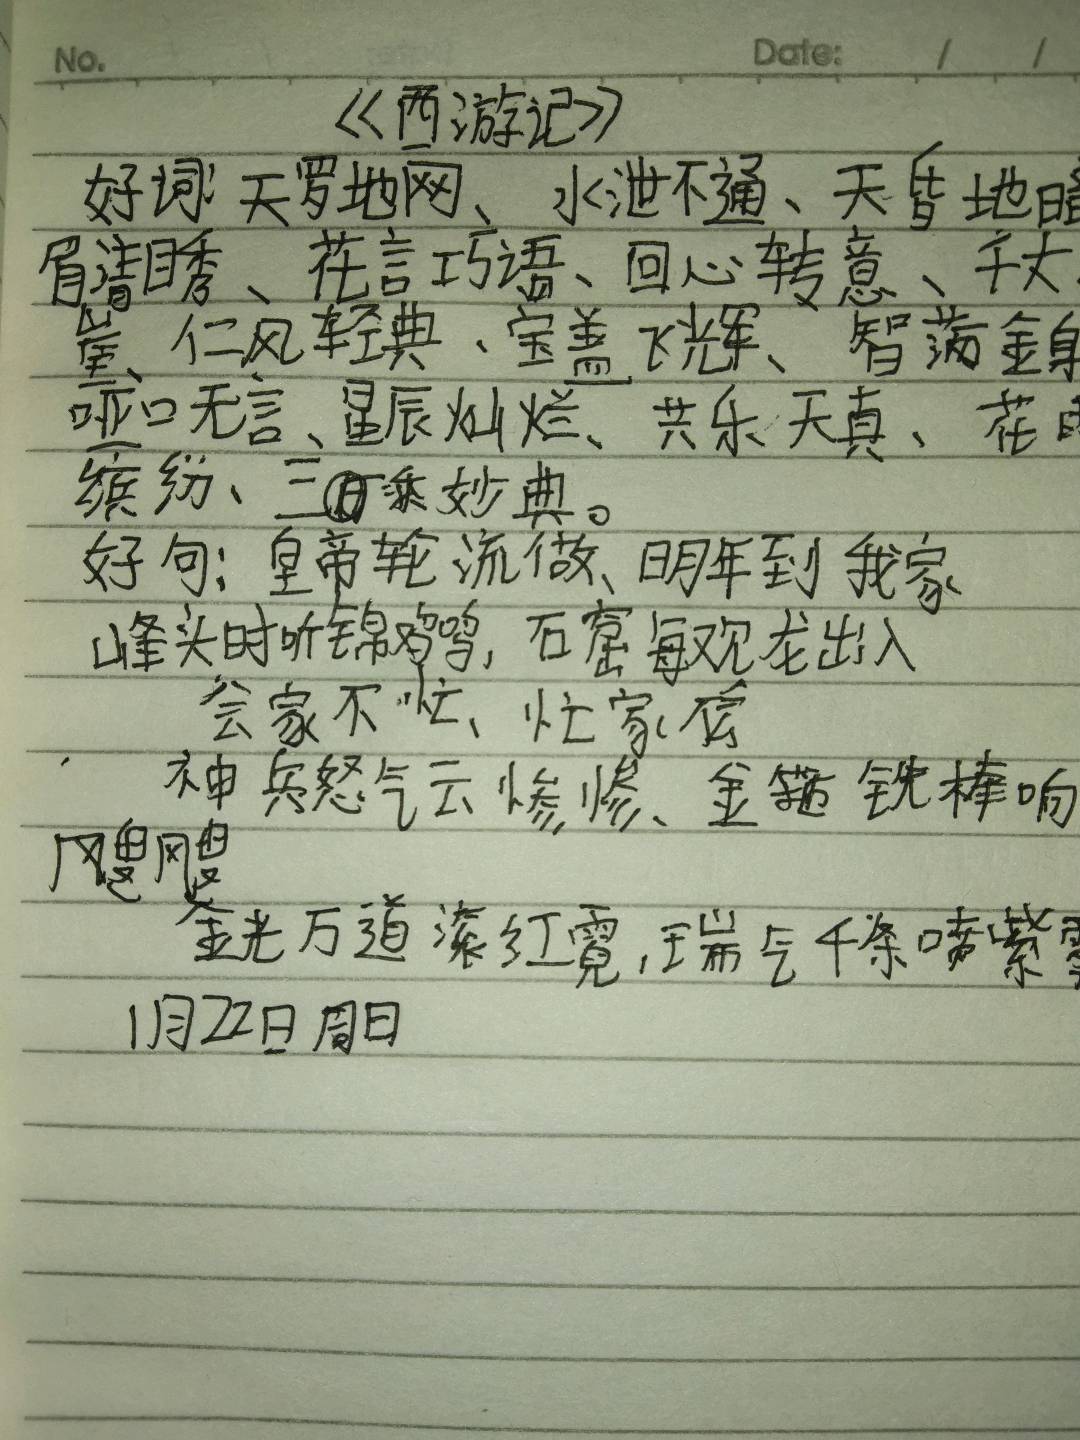 No. Date: / /
《西游记》
好词：天罗地网、水泄不通、天昏地暗
眉清目秀、花言巧语、回心转意、千丈
崖、仁风轻典、宝盖飞辉、智满金身
哑口无言、星辰灿烂、共乐天真、花雨
缤纷、三乘妙典。
好句：皇帝轮流做、明年到我家
峰头时听锦鸡鸣，石窟每观龙出入
会家不忙、忙家不会
神兵怒气云惨惨、金箍铁棒响
飕飕
金光万道滚红霓，瑞气千条喷紫雾
1月22日周日